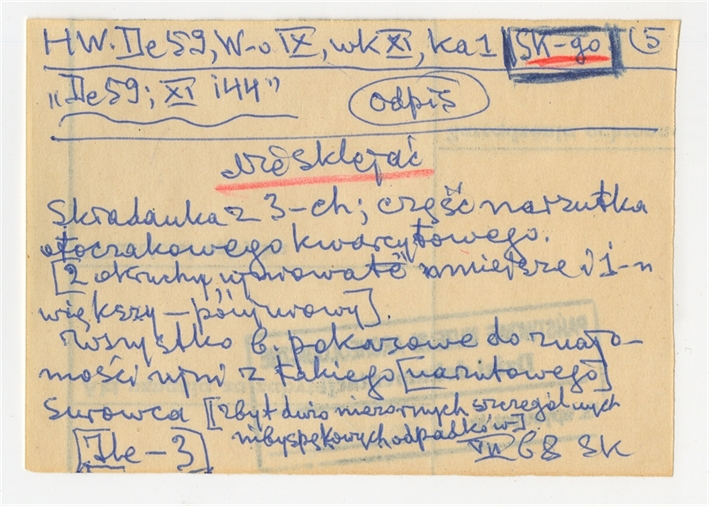 HW. De 59, W-o IX, wk XI, ka 1 SK-go 5
"De 59; XI i 44" Odpis
Nie sklejać
Składanka z 3-ch; część narzutka
otoczakowego kwarcytowego.
[2 okruchy, wiórowate mniejsze i 1-n
większy –
Wszystko b. pokazowe do znajo-
mości z takiego [narzutowego]
Surowca [zbyt dużo niezornych szczególnych
odpadków-].
[Ile – 3] VII 68 SK